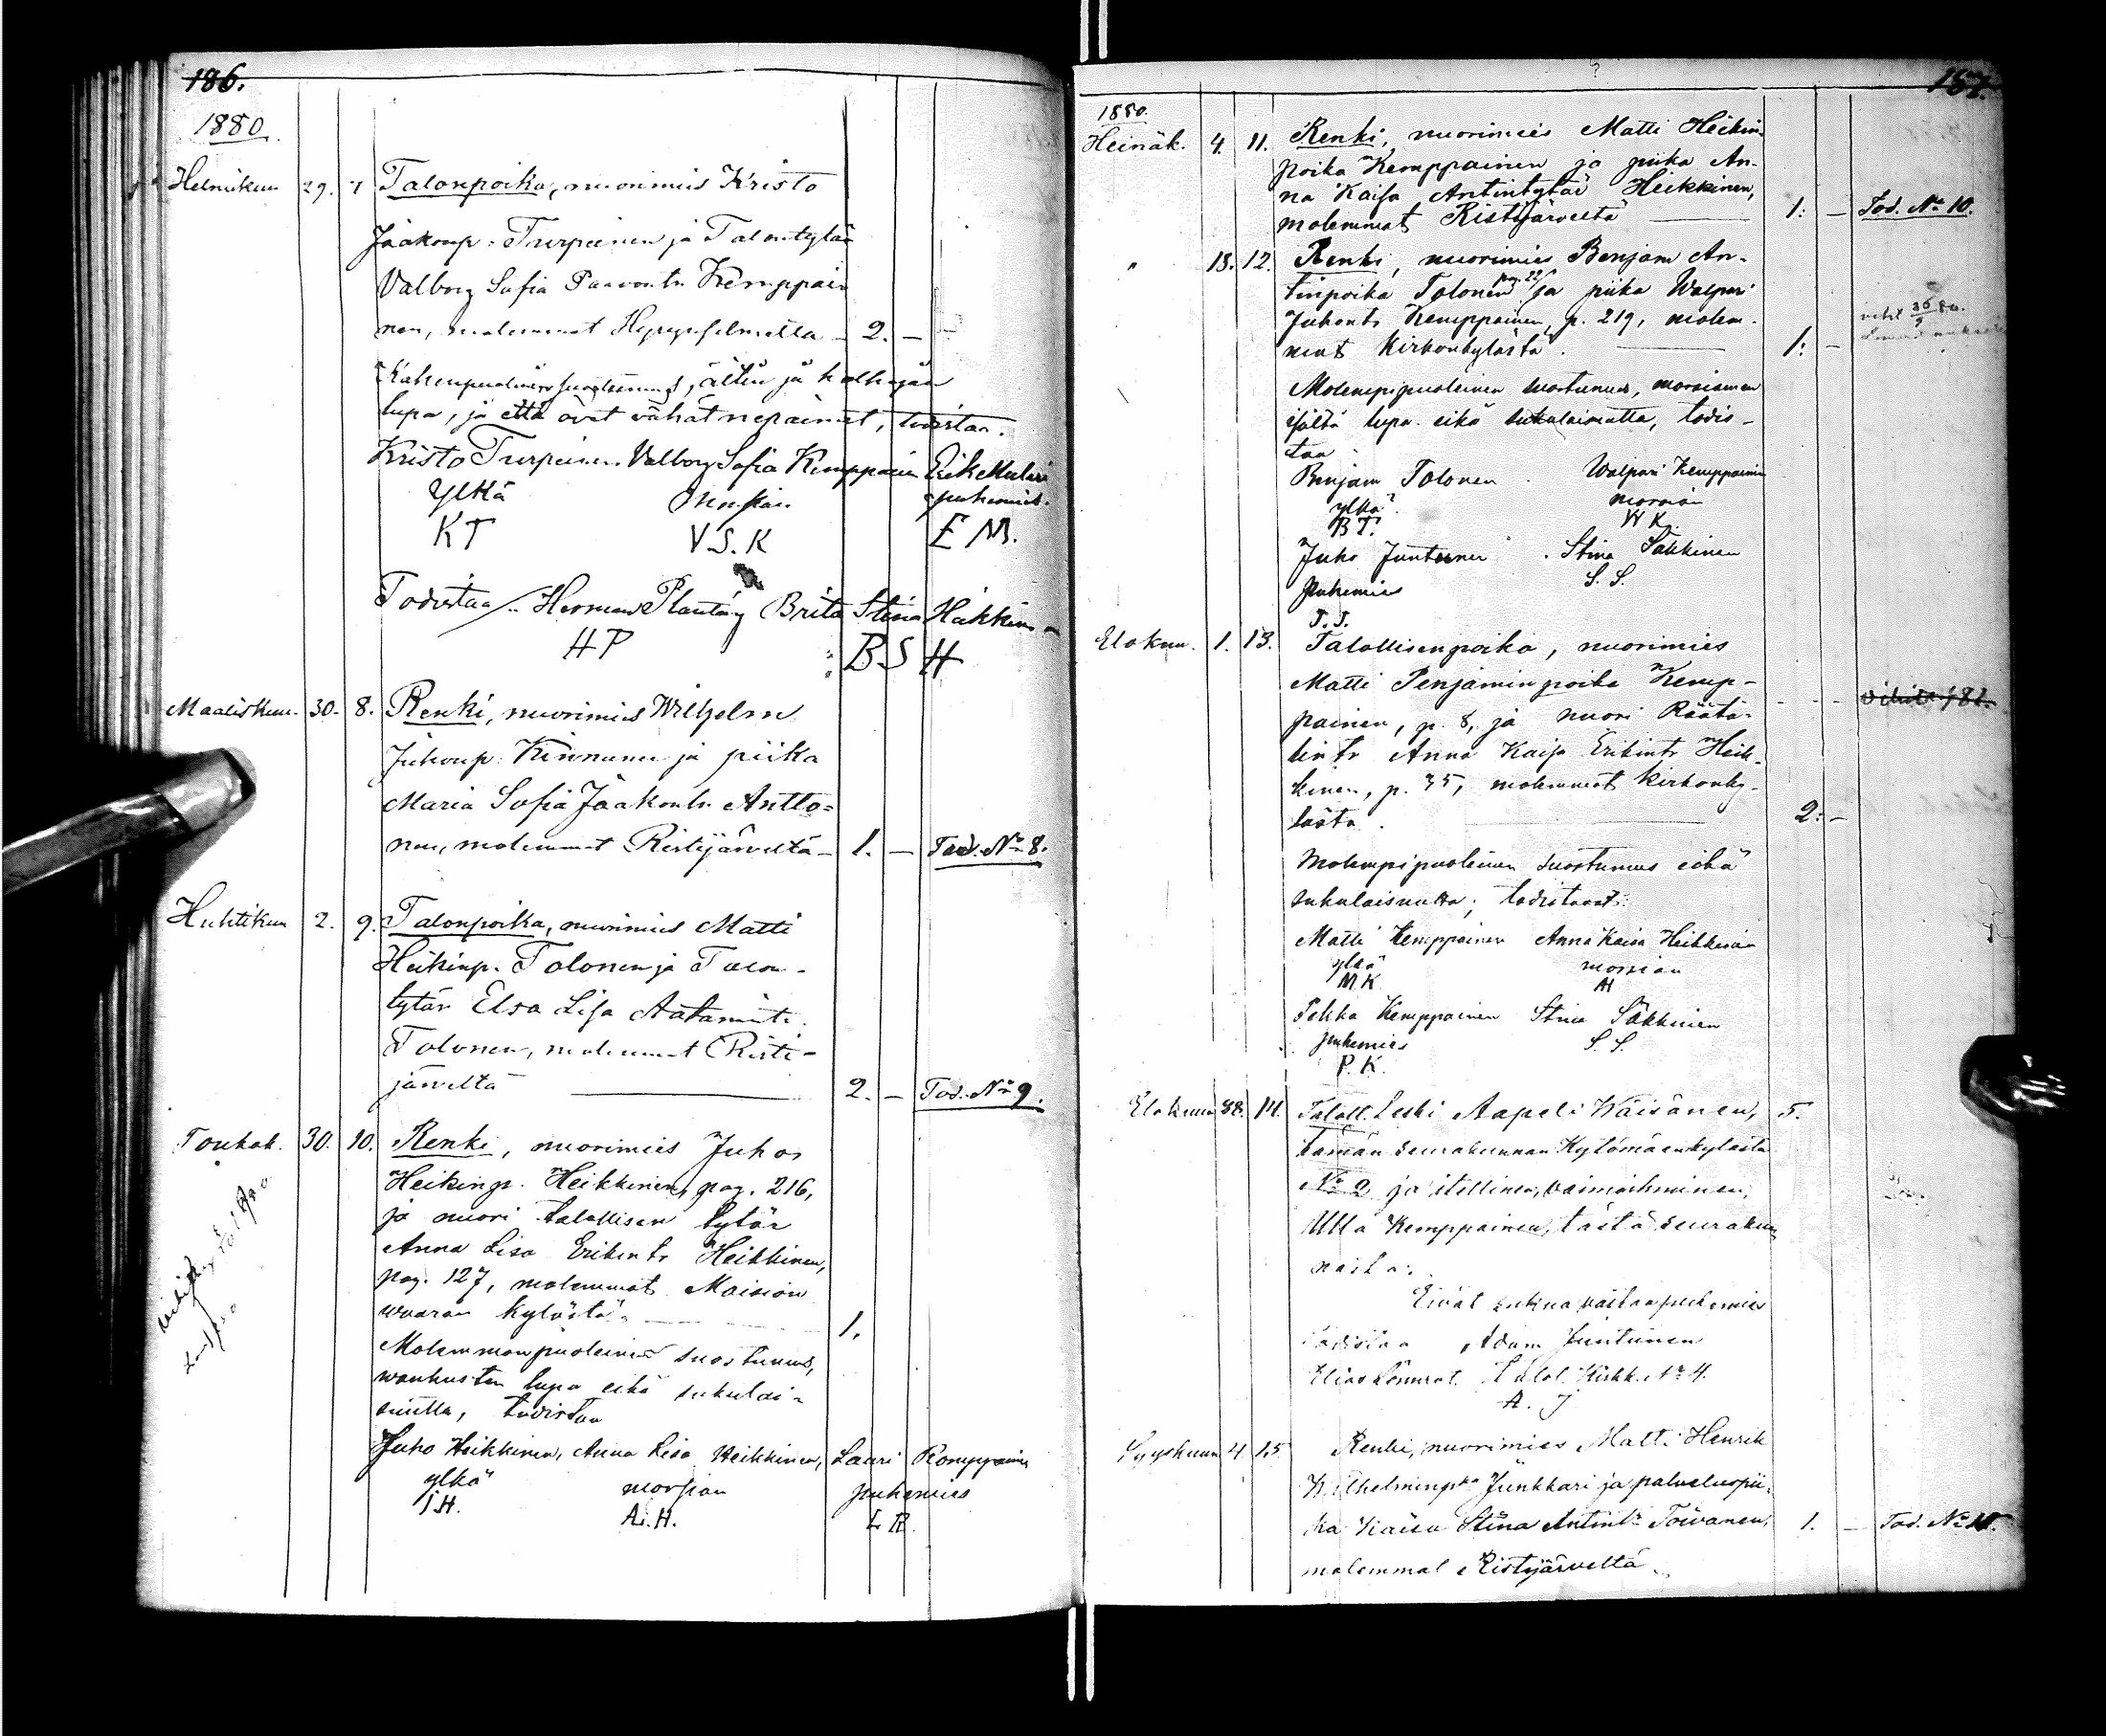 186.
1880
Helmikuu 29. 7 Talonpoika, nuorimies Kristo
Jaakonp. Turpeinen ja Talontytär
Valborg Sofia Paavontr. Kemppai
nen, molemmat Hyrynsalmelta - 2. -
Kahenpuolinen suostumus, äitin ja holhojan
lupa, ja että ovat vähät nepaimet, todistaa.
Kristo Turpeinen Valborg Sofia Kemppainen Erik Mulari
Ylkä Morsian puhemies.
KT V S. K E M.
Todistaa Herman Planting Brita Stina Häkkinen
HP B S H
Maaliskuu. 30. 8. Renki, nuorimies Wilhelm
Juhonp. Kinnunen ja piika
Maria Sofia Jaakontr. Antto=
nen, molemmat Ristijärveltä - 1. - Tod. No 8.
Huhtikuu 2. 9. Talonpoika, nuorimies Matti
Heikinp. Tolonen ja Talon-
tytär Elsa Lisa Aatamintr.
Tolonen, molemmat Risti-
järveltä 2. - Tod. No 9.
Toukok. 30. 10. Renki, nuorimies Juho
Heikinp. Heikkinen, pag. 216,
ja nuori talollisen tytär
Anna Lisa Erikintr Heikkinen,
pag. 127, molemmat Moision
waaran kylästä. 1.
Molemmanpuoleinen suostumus,
wanhusten lupa eikä sukulai-
suutta, todistaa
Juho Heikkinen, Anna Lisa Heikkinen, Lauri Komppainen
ylkä morsian puhemies
J.H. A.H. L R.
187.
1880.
Heinäk. 4. 11. Renki, nuorimies Matti Heikin
poika Kemppainen ja piika An-
na Kaisa Antintytär Heikkinen,
molemmat Ristijärveltä 1: - Tod. No 10.
" 18. 12. Renki, nuorimies Benjam An-
tinpoika Tolonen pag. 22 ja piika Walpuri
Juhontr Kemppainen, p. 219, molem-
mat Kirkonkylästä. 1: -
Molempipuoleinen suostumus, morsiamen
isältä lupa eikä sukulaisuutta, todis-
taa
Benjam Tolonen Walpuri Kemppainen
ylkä morsian
B T. W K.
Juho Juntunen Stina Säkkinen
puhemies S. S.
J. J.
Elokuu. 1. 13. Talollisenpoika, nuorimies
Matti Penjaminpoika Kemp-
painen, p. 8, ja nuori Räätä-
lintr Anna Kaisa Erikintr Heik-
kinen, p. 35, molemmat kirkonky-
lästä. 2: -
Molempipuoleinen suostumus eikä
sukulaisuutta; todistavat:
Matti Kemppainen Anna Kaisa Heikkinen
ylkä morsian
M K AH
Pekka Kemppainen Stina Säkkinen
puhemies S. S.
P. K.
Elokuu 22. 14. Taloll. Leski Aapeli Wäisänen, 5.
tämän seurakunnan Kytömäenkylästä
No 2 ja itellinen, vaimoihminen,
Ulla Kemppainen, tästä seurakun
nasta.
Eivät sukua, vaitaa puhemies
todistaa Adam Juntunen
Elias Lönnrot. Talol. Kirkk. No 4.
A. J
Syyskuun 4 15 Renki, nuorimies Matti Henrik
Wilhelminpka Junkkari ja palveluspii-
ka Kaisa Stina Antintr Toivanen, 1. - Tod. No 11.
molemmat Ristijärveltä